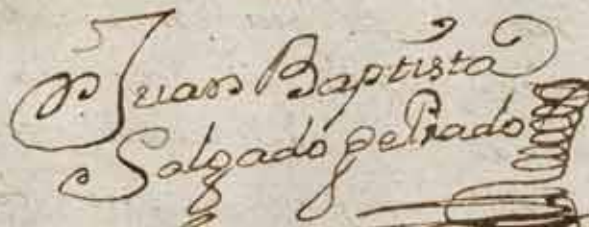 Juan Baptista
Salgado de Prado